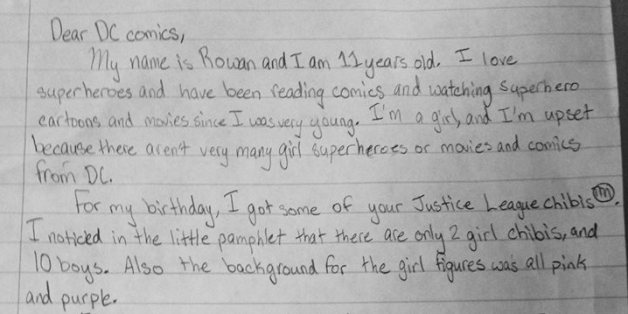 Dear DC comics,
My name is Rowan and I am 11 years old. I love
superheroes and have been reading comics and watching superhero
cartoons and movies since I was very young. I'm a girl, and I'm upset
because there aren't very many girl superheroes or movies and comics
from DC.
For my birthday, I got some of your Justice League chibis™.
I noticed in the little pamphlet that there are only 2 girl chibis, and
10 boys. Also the background for the girl figures was all pink
and purple.